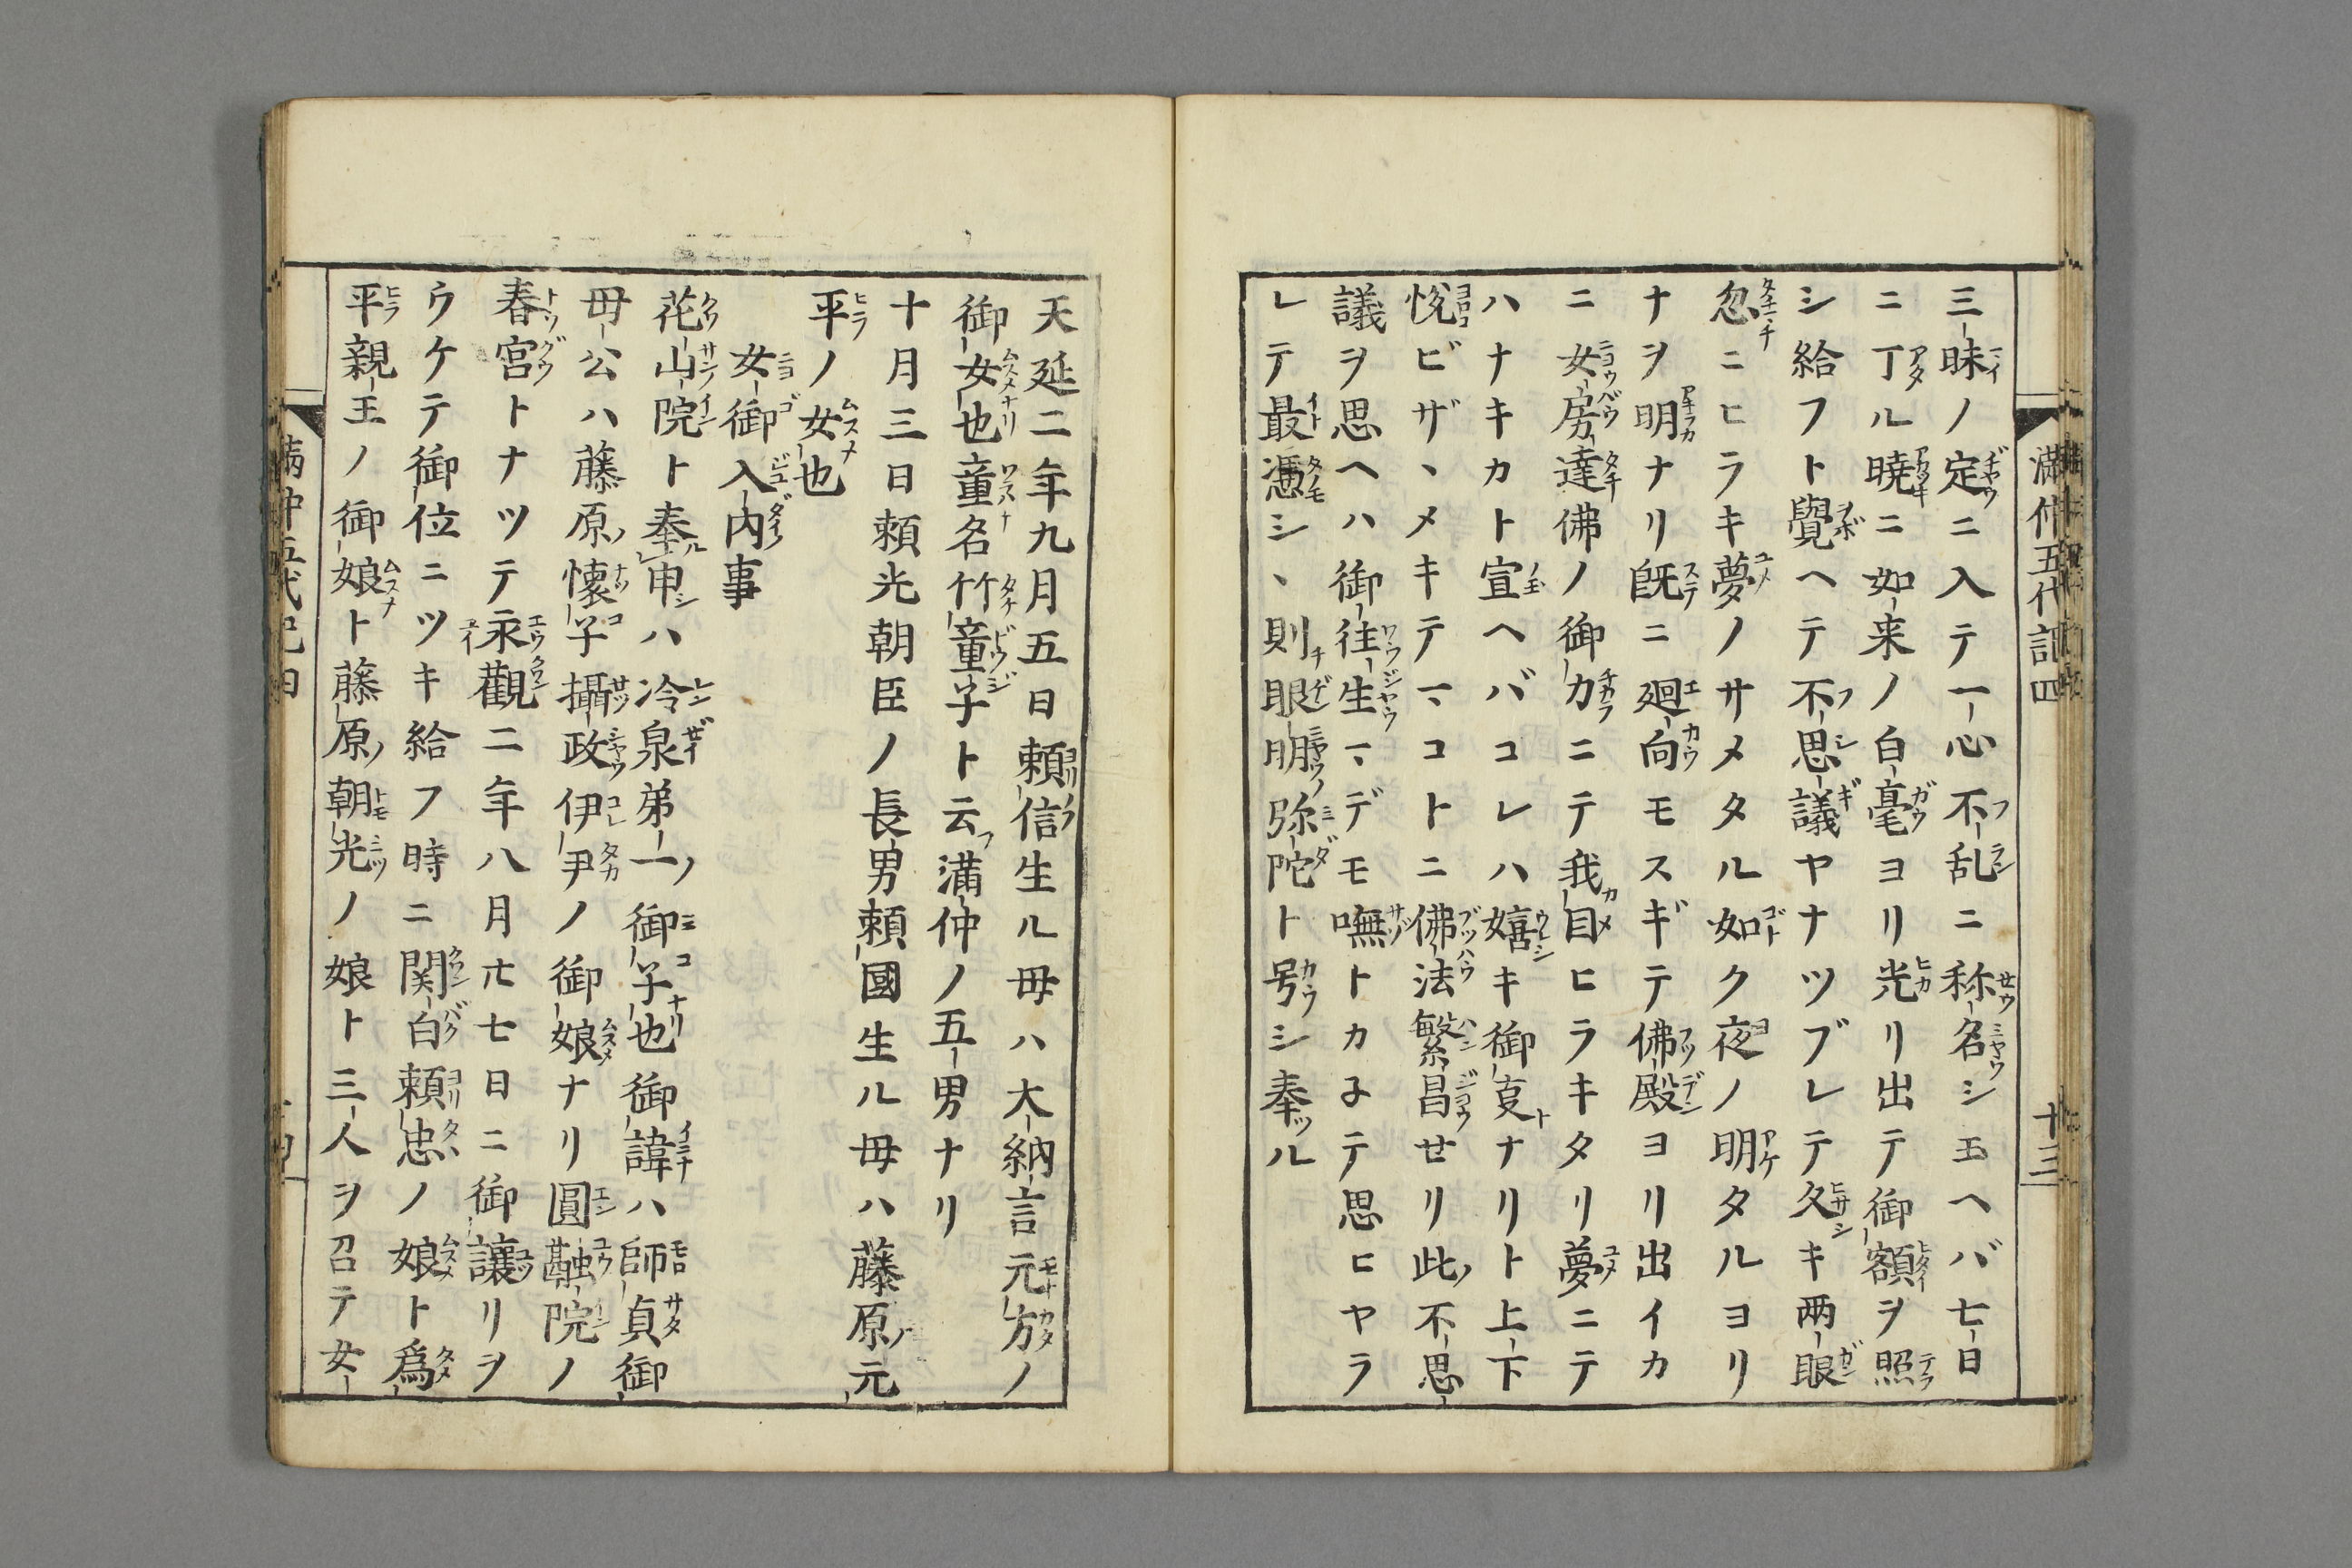 満仲五代記四 十三
三昧ノ定ニ入テ一心不乱ニ称名シ玉ヘバ七日
ニ丁ル暁ニ如来ノ白毫ヨリ光リ出テ御額ヲ照
シ給フト覺ヘテ不思議ヤナツブレテ久キ两眼
忽ニヒラキ夢ノサメタル如ク夜ノ明タルヨリ
ナヲ明ナリ既ニ廻向モスギテ佛殿ヨリ出イカ
ニ女房達佛ノ御力ニテ我目ヒラキタリ夢ニテ
ハナキカト宣ヘバコレハ嬉キ御㕝ナリト上下
悦ビザヽメキテマコトニ佛法繁昌セリ此不思
議ヲ思ヘハ御往生マデモ嘸トカ子テ思ヒヤラ
レテ最憑シヽ則眼明弥陀ト号シ奉ツル
天延二年九月五日頼信生ル母ハ大納言元方ノ
御女也童名竹童子ト云満仲ノ五男ナリ
十月三日頼光朝臣ノ長男頼國生ル母ハ藤原元
平ノ女也
女御入内事
花山院ト奉申ハ冷泉弟一御子也御諱ハ師貞御
母公ハ藤原懐子攝政伊尹ノ御娘ナリ圓融院ノ
春宮トナツテ永觀二年八月廿七日ニ御讓リヲ
ウケテ御位ニツキ給フ時ニ関白頼忠ノ娘ト爲
平親王ノ御娘ト藤原朝光ノ娘ト三人ヲ召テ女
満仲五代記四